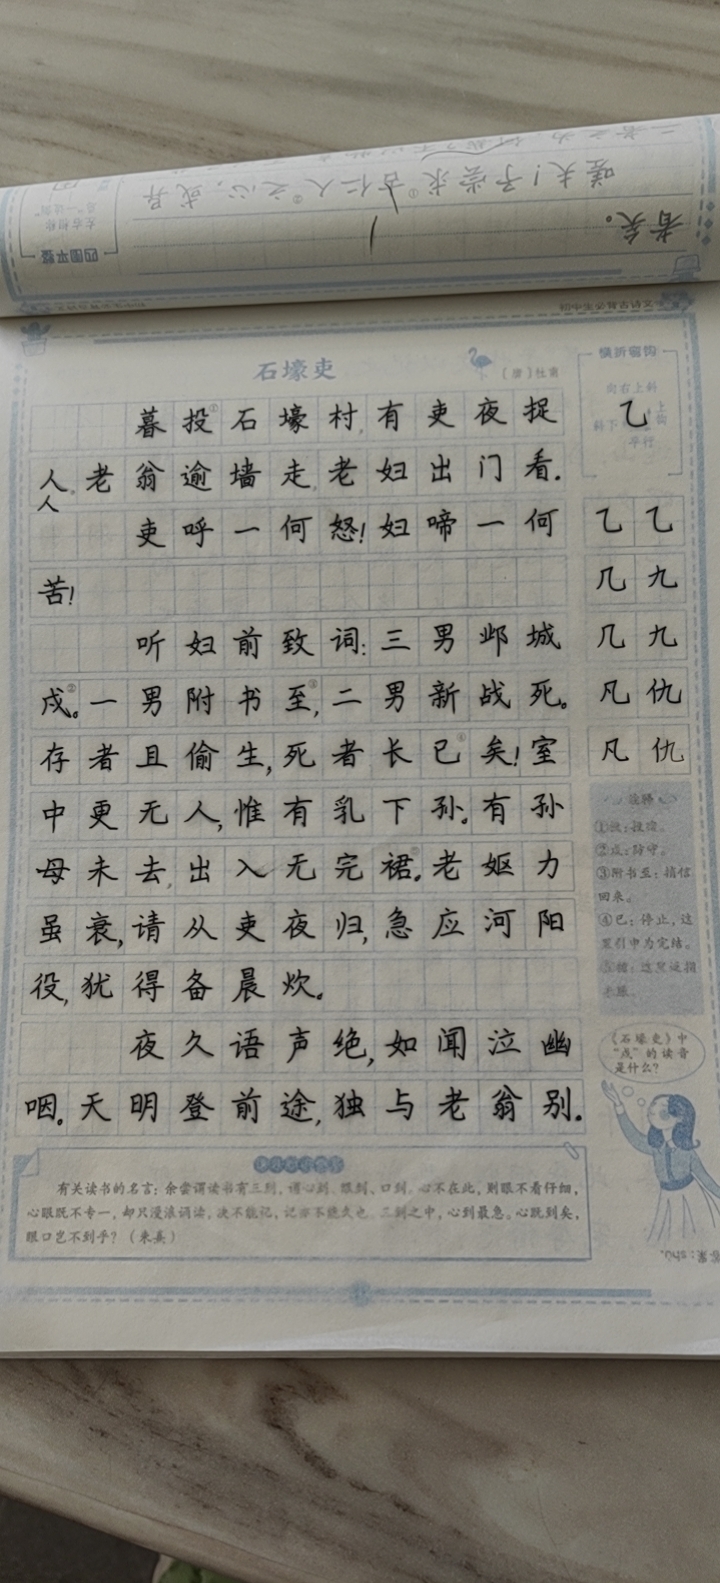 嗟夫！予尝求古仁人之心，或异
者矣。
石壕吏
（唐）杜甫
暮投①石壕村，有吏夜捉
人。老翁逾墙走，老妇出门看。
人
吏呼一何怒！妇啼一何
苦！
听妇前致词：三男邺城
戍②。一男附书至③，二男新战死。
存者且偷生，死者长已④矣！室
中更无人，惟有乳下孙。有孙
母未去，出入无完裙⑤。老妪力
虽衰，请从吏夜归，急应河阳
役，犹得备晨炊。
夜久语声绝，如闻泣幽
咽。天明登前途，独与老翁别。
横折弯钩
向右上斜
乙
平行
乙 乙
几 九
几 九
凡 仇
凡 仇
注释
①投：投宿。
②戍：防守。
③附书至：捎信
回来。
④已：停止，这
里引申为完结。
《石壕吏》中
“戍”的读音
是什么？
答案：shù。
有关读书的名言：余尝谓读书有三到，谓心到、眼到、口到。心不在此，则眼不看仔细，
心眼既不专一，却只漫浪诵读，决不能记，记亦不能久也。三到之中，心到最急。心既到矣，
眼口岂不到乎？（朱熹）